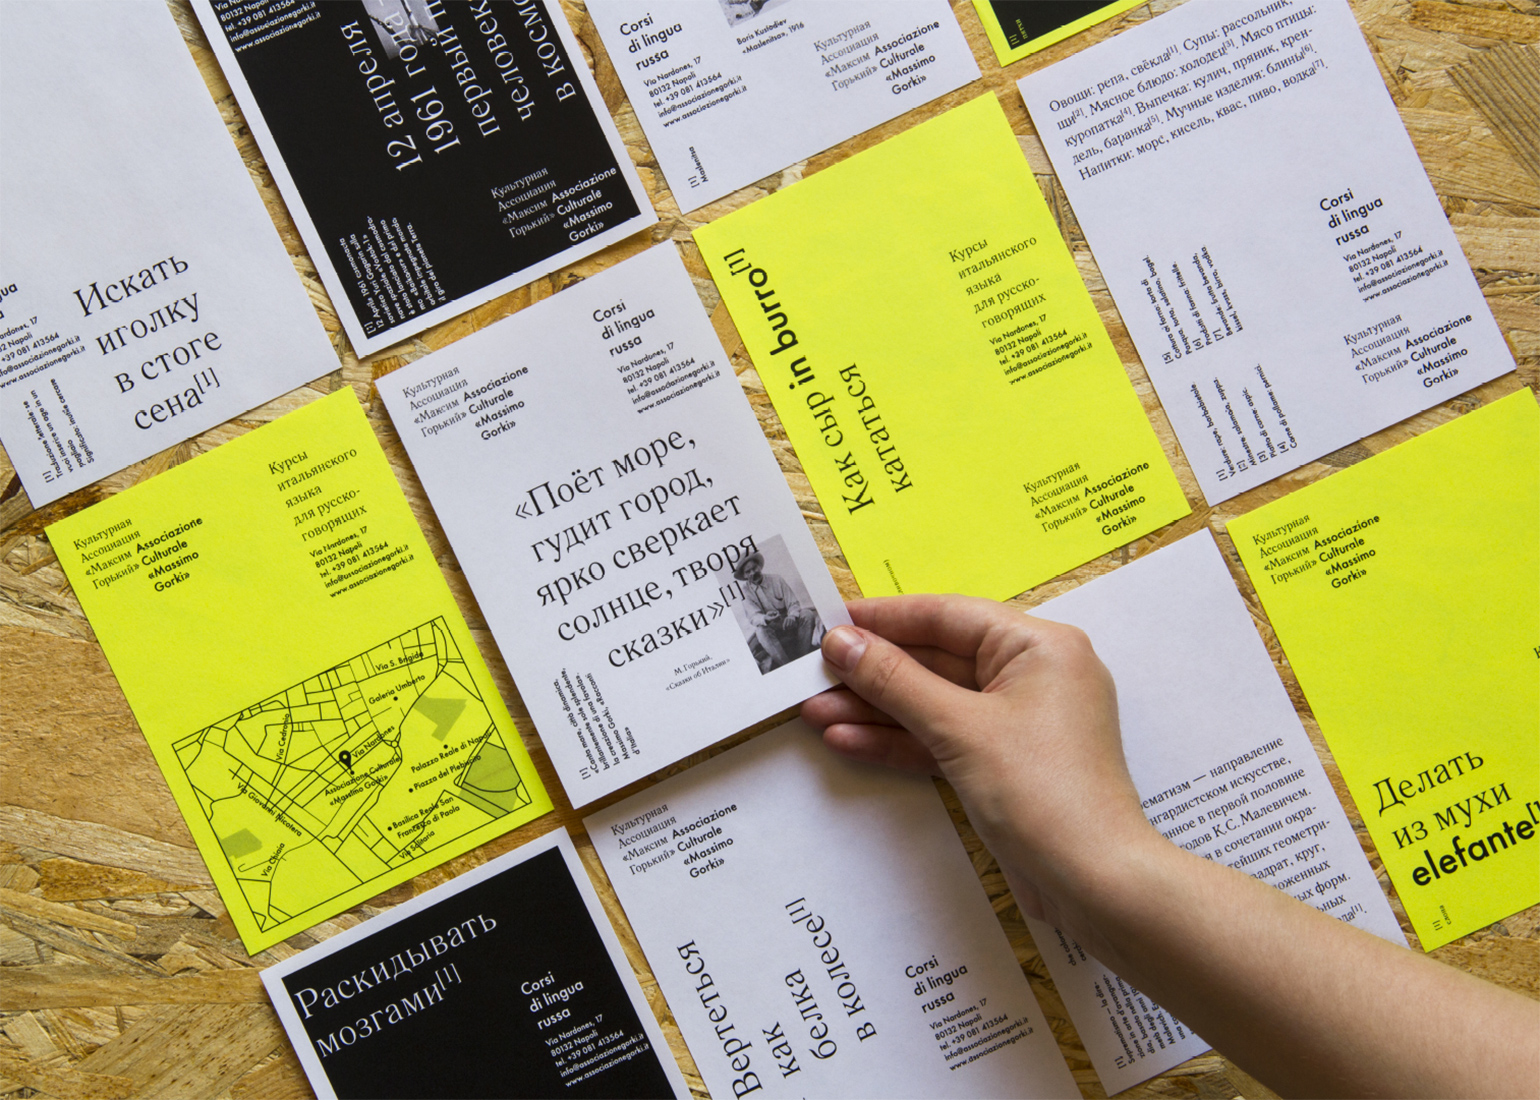 80132 Napoli
tel. +39 081 413564
info@associazionegorki.it
www.associazionegorki.it
12 апреля
1961 года
первый
человек
в космо
Культурная
Ассоциация
«Максим
Горький»
Associazione
Culturale
«Massimo
Gorki»
Corsi
di lingua
russa
Via Nardones, 17
80132 Napoli
tel. +39 081 413564
info@associazionegorki.it
www.associazionegorki.it
Boris Kustodiev
«Maslenitsa», 1916
Культурная
Ассоциация
«Максим
Горький»
Associazione
Culturale
«Massimo
Gorki»
[1]
Maslenitsa
[1]
Овощи: репа, свёкла[1]. Супы: рассольник,
щи[2]. Мясное блюдо: холодец[3]. Мясо птицы:
куропатка[4]. Выпечка: кулич, пряник, крен-
дель, баранка[5]. Мучные изделия: блины[6].
Напитки: морс, кисель, квас, пиво, водка[7].
Corsi
di lingua
russa
Via Nardones, 17
80132 Napoli
tel. +39 081 413564
info@associazionegorki.it
www.associazionegorki.it
Культурная
Ассоциация
«Максим
Горький»
Associazione
Culturale
«Massimo
Gorki»
[1]
[2]
[3]
[4]
[5]
[6]
[7]
Nardones, 17
Napoli
+39 081 413564
info@associazionegorki.it
www.associazionegorki.it
Искать
иголку
в стоге
сена[1]
[1]
Культурная
Ассоциация
«Максим
Горький»
Associazione
Culturale
«Massimo
Gorki»
Corsi
di lingua
russa
Via Nardones, 17
80132 Napoli
tel. +39 081 413564
info@associazionegorki.it
www.associazionegorki.it
«Поёт море,
гудит город,
ярко сверкает
солнце, творя
сказки»[1]
М. Горький,
«Сказки об Италии»
[1]
«Canta mare, città dinamica,
brillantemente sole splendente,
la creazione di una favola».
Massimo Gorki, «Racconti
d'Italia»
Как сыр in burro[1]
кататься
Курсы
итальянского
языка
для русско-
говорящих
Via Nardones, 17
80132 Napoli
tel. +39 081 413564
info@associazionegorki.it
www.associazionegorki.it
Культурная
Ассоциация
«Максим
Горький»
Associazione
Culturale
«Massimo
Gorki»
Культурная
Ассоциация
«Максим
Горький»
Associazione
Culturale
«Massimo
Gorki»
Курсы
итальянского
языка
для русско-
говорящих
Via Nardones, 17
80132 Napoli
tel. +39 081 413564
info@associazionegorki.it
www.associazionegorki.it
Via S. Brigida
Galeria Umberto
Via Cedronio
Via Nardones
Associazione Culturale
«Massimo Gorki»
Palazzo Reale di Napoli
Piazza del Plebiscito
Via Giovanni Nicotera
Basilica Reale San
Francesco di Paola
Via Solitaria
Via Chiaia
Культурная
Ассоциация
«Максим
Горький»
Associazione
Culturale
«Massimo
Gorki»
Делать
из мухи
elefante
[1]
слона
ематизм — направление
нгардистском искусстве,
анное в первой половине
годов К.С. Малевичем.
в сочетании окра-
тейших геометри-
вадрат, круг,
ложенных
форм.
Раскидывать
мозгами[1]
Corsi
di lingua
russa
Via Nardones, 17
80132 Napoli
tel. +39 081 413564
info@associazionegorki.it
www.associazionegorki.it
Культурная
Ассоциация
«Максим
Горький»
Associazione
Culturale
«Massimo
Gorki»
Вертеться
как
белка
в колесе[1]
Corsi
di lingua
russa
Via Nardones, 17
80132 Napoli
tel. +39 081 413564
info@associazionegorki.it
www.associazionegorki.it